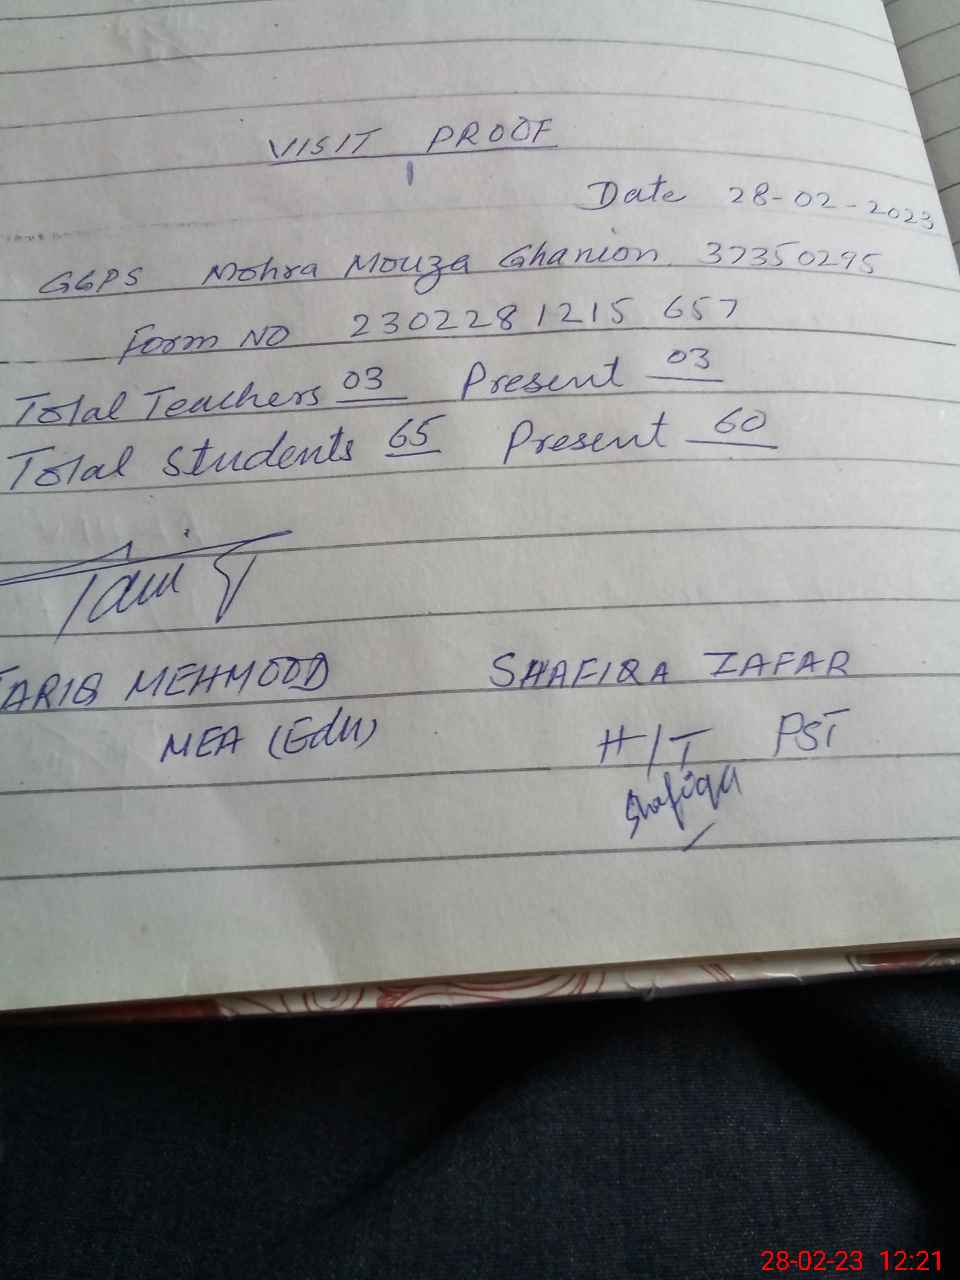 VISIT PROOF
Date 28-02-2023
GGPS Mohra Mouza Ghanion 37350295
Form NO 2302281215657
Total Teachers 03 Present 03
Total Students 65 Present 60
TARIQ MEHMOOD SHAFIQA ZAFAR
MEA (Edu) H/T PST
Shafiqa
28-02-23 12:21